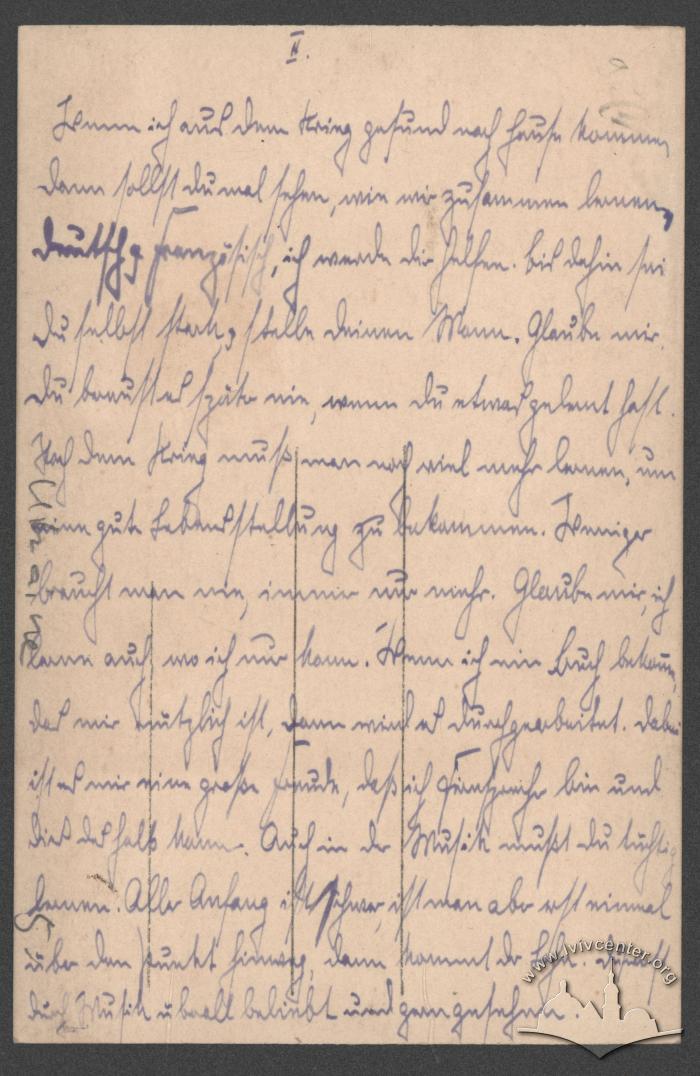 II.
Wenn ich aus dem Krieg gesund nach Hause komme,
dann sollst du mal sehen, wie wir zusammen lernen,
deutsch, französisch, ich werde dir helfen. bis dahin sei
du selbst stark, stelle deinen Mann. Glaube mir.
du bereust es später nie, wenn du etwas gelernt hast.
Nach dem Krieg muß man noch viel mehr lernen, um
eine gute Lebensstellung zu bekommen. Weniger
braucht man nie, immer nur mehr. Glaube mir, ich
lerne auch wo ich nur kann. Wenn ich ein Buch bekomme,
das mir nützlich ist, dann wird es durchgearbeitet. Dabei
ist es mir eine große Freude, daß ich Fernsprecher bin und
dies deshalb kann. Auch in der Musik mußt du tüchtig
lernen. Aller Anfang ist schwer, ist man aber erst einmal
über den Punkt hinweg, dann kommt der Lohn. du bist
durch Musik überall beliebt und gern gesehen.
www.lvivcenter.org